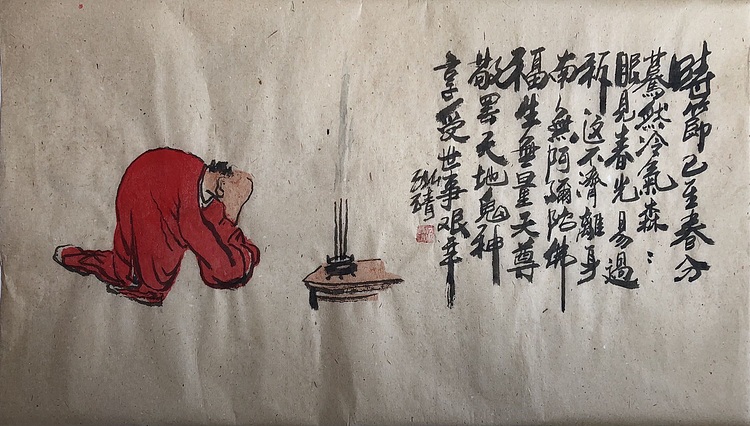 時節已至春分
驀然冷氣森森
眼見春光易過
這不濟離身
南無阿彌陀佛
福生無量天尊
敬罢天地鬼神
享受世事艰辛